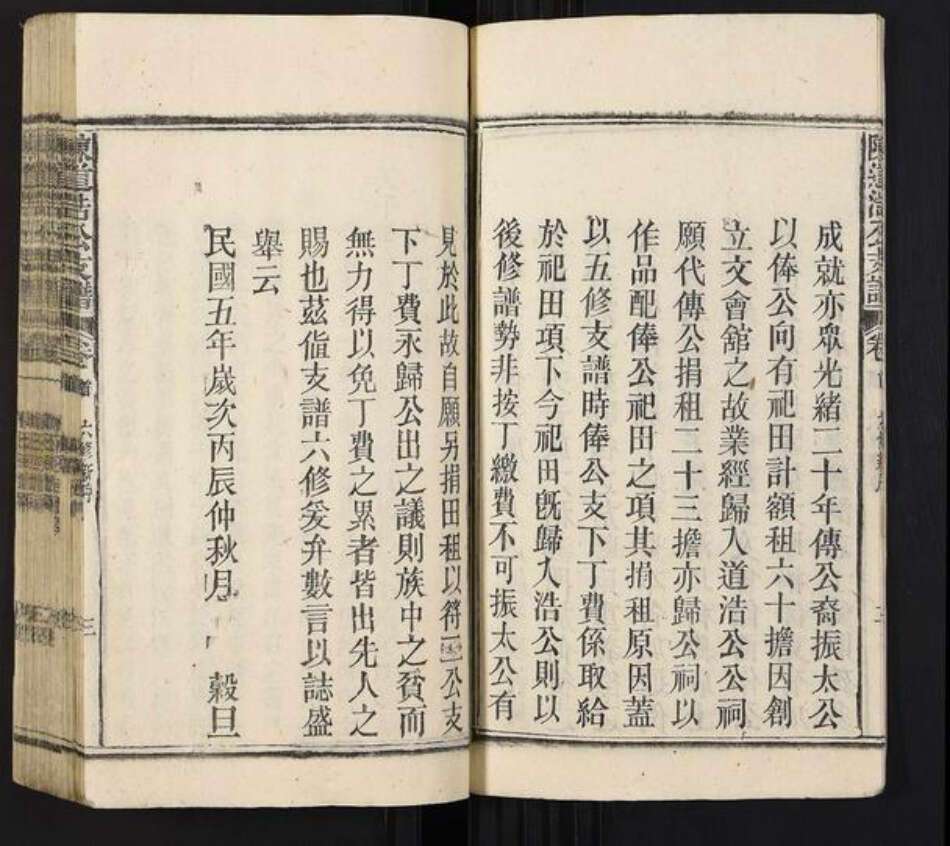 成就亦眾光緒二十年傳公裔振太公
以俸公向有祀田計額租六十擔因創
立文會舘之故業經歸入道浩公公祠
願代傳公捐租二十三擔亦歸公祠以
作品配俸公祀田之項其捐租原因蓋
以五修支譜時俸公支下丁費係取給
於祀田項下今祀田既歸入浩公則以
後修譜勢非按丁繳費不可振太公有
見於此故自願另捐田租以符公支
下丁費永歸公出之議則族中之貧而
無力得以免丁費之累者皆出先人之
賜也茲值支譜六修爰弁數言以誌盛
舉云
民國五年歲次丙辰仲秋月 穀旦
陳道浩公支譜 卷首 六修新序 三